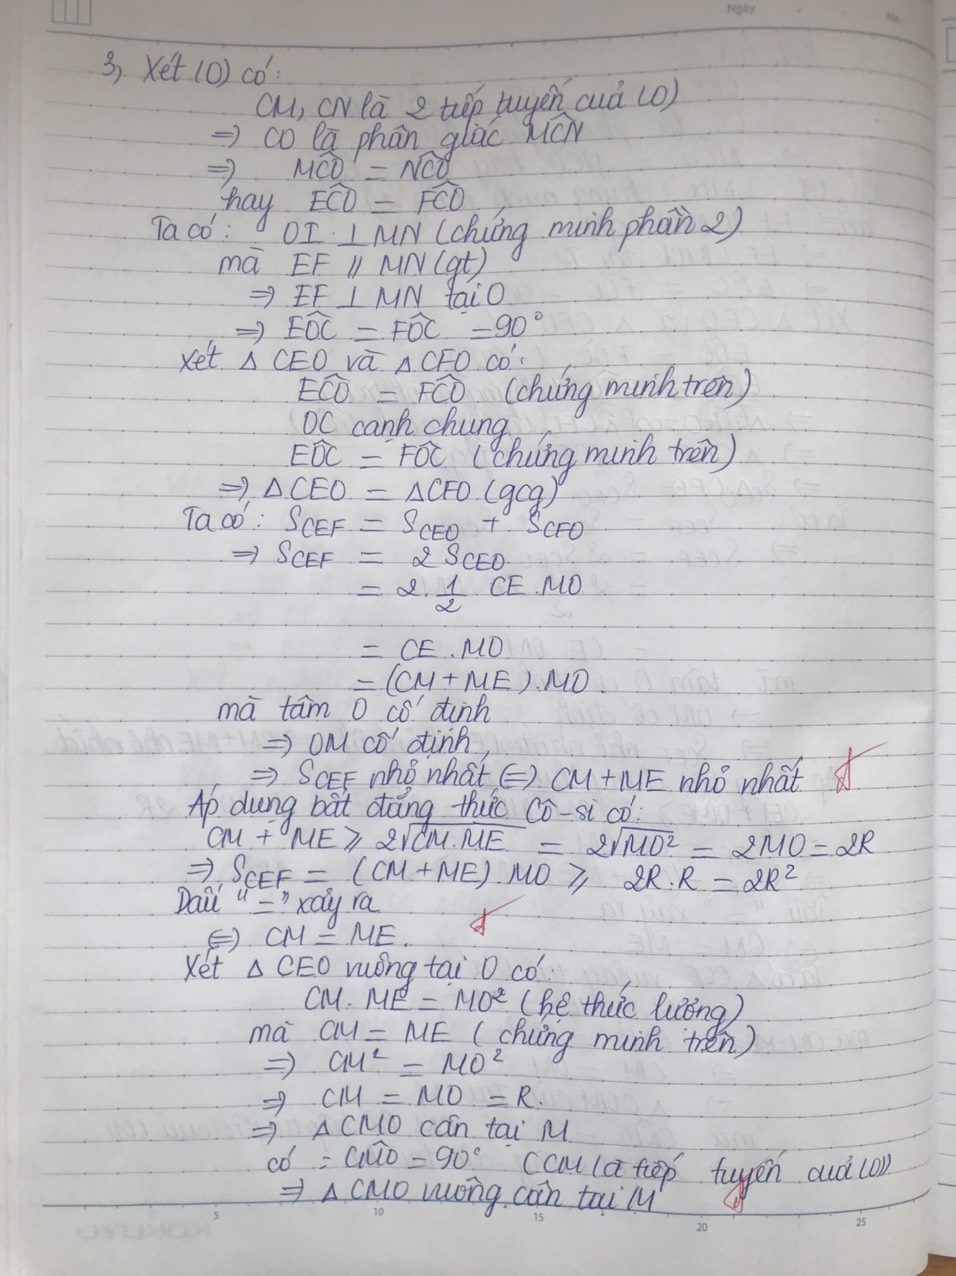 Ngày
No.
3, Xét (O) có:
CM, CN là 2 tiếp tuyến của (O)
=> CO là phân giác MĈN
=> MĈO = NĈO
hay EĈO = FĈO
Ta có: OI ⊥ MN (chứng minh phần 2)
mà EF // MN (gt)
=> EF ⊥ MN tại O
=> EÔC = FÔC = 90°
Xét △ CEO và △ CFO có:
EĈO = FĈO (chứng minh trên)
OC cạnh chung
EÔC = FÔC (chứng minh trên)
=> △ CEO = △ CFO (gcg)
Ta có: S_CEF = S_CEO + S_CFO
=> S_CEF = 2 S_CEO
= 2. 1/2 CE. MO
= CE. MO
= (CM + ME). MO
mà tâm O cố định
=> OM cố định
=> S_CEF nhỏ nhất (=) CM + ME nhỏ nhất
Áp dụng bất đẳng thức Cô-si có:
CM + ME ⩾ 2√CM.ME = 2√MO² = 2MO = 2R
=> S_CEF = (CM + ME). MO ⩾ 2R.R = 2R²
Dấu "=" xảy ra
(=) CM = ME.
Xét △ CEO vuông tại O có:
CM. ME = MO² (hệ thức lượng)
mà CM = ME (chứng minh trên)
=> CM² = MO²
=> CM = MO = R.
=> △ CMO cân tại M
có: CM̂O = 90° (CM là tiếp tuyến của (O))
=> △ CMO vuông cân tại M
5 10 15 20 25